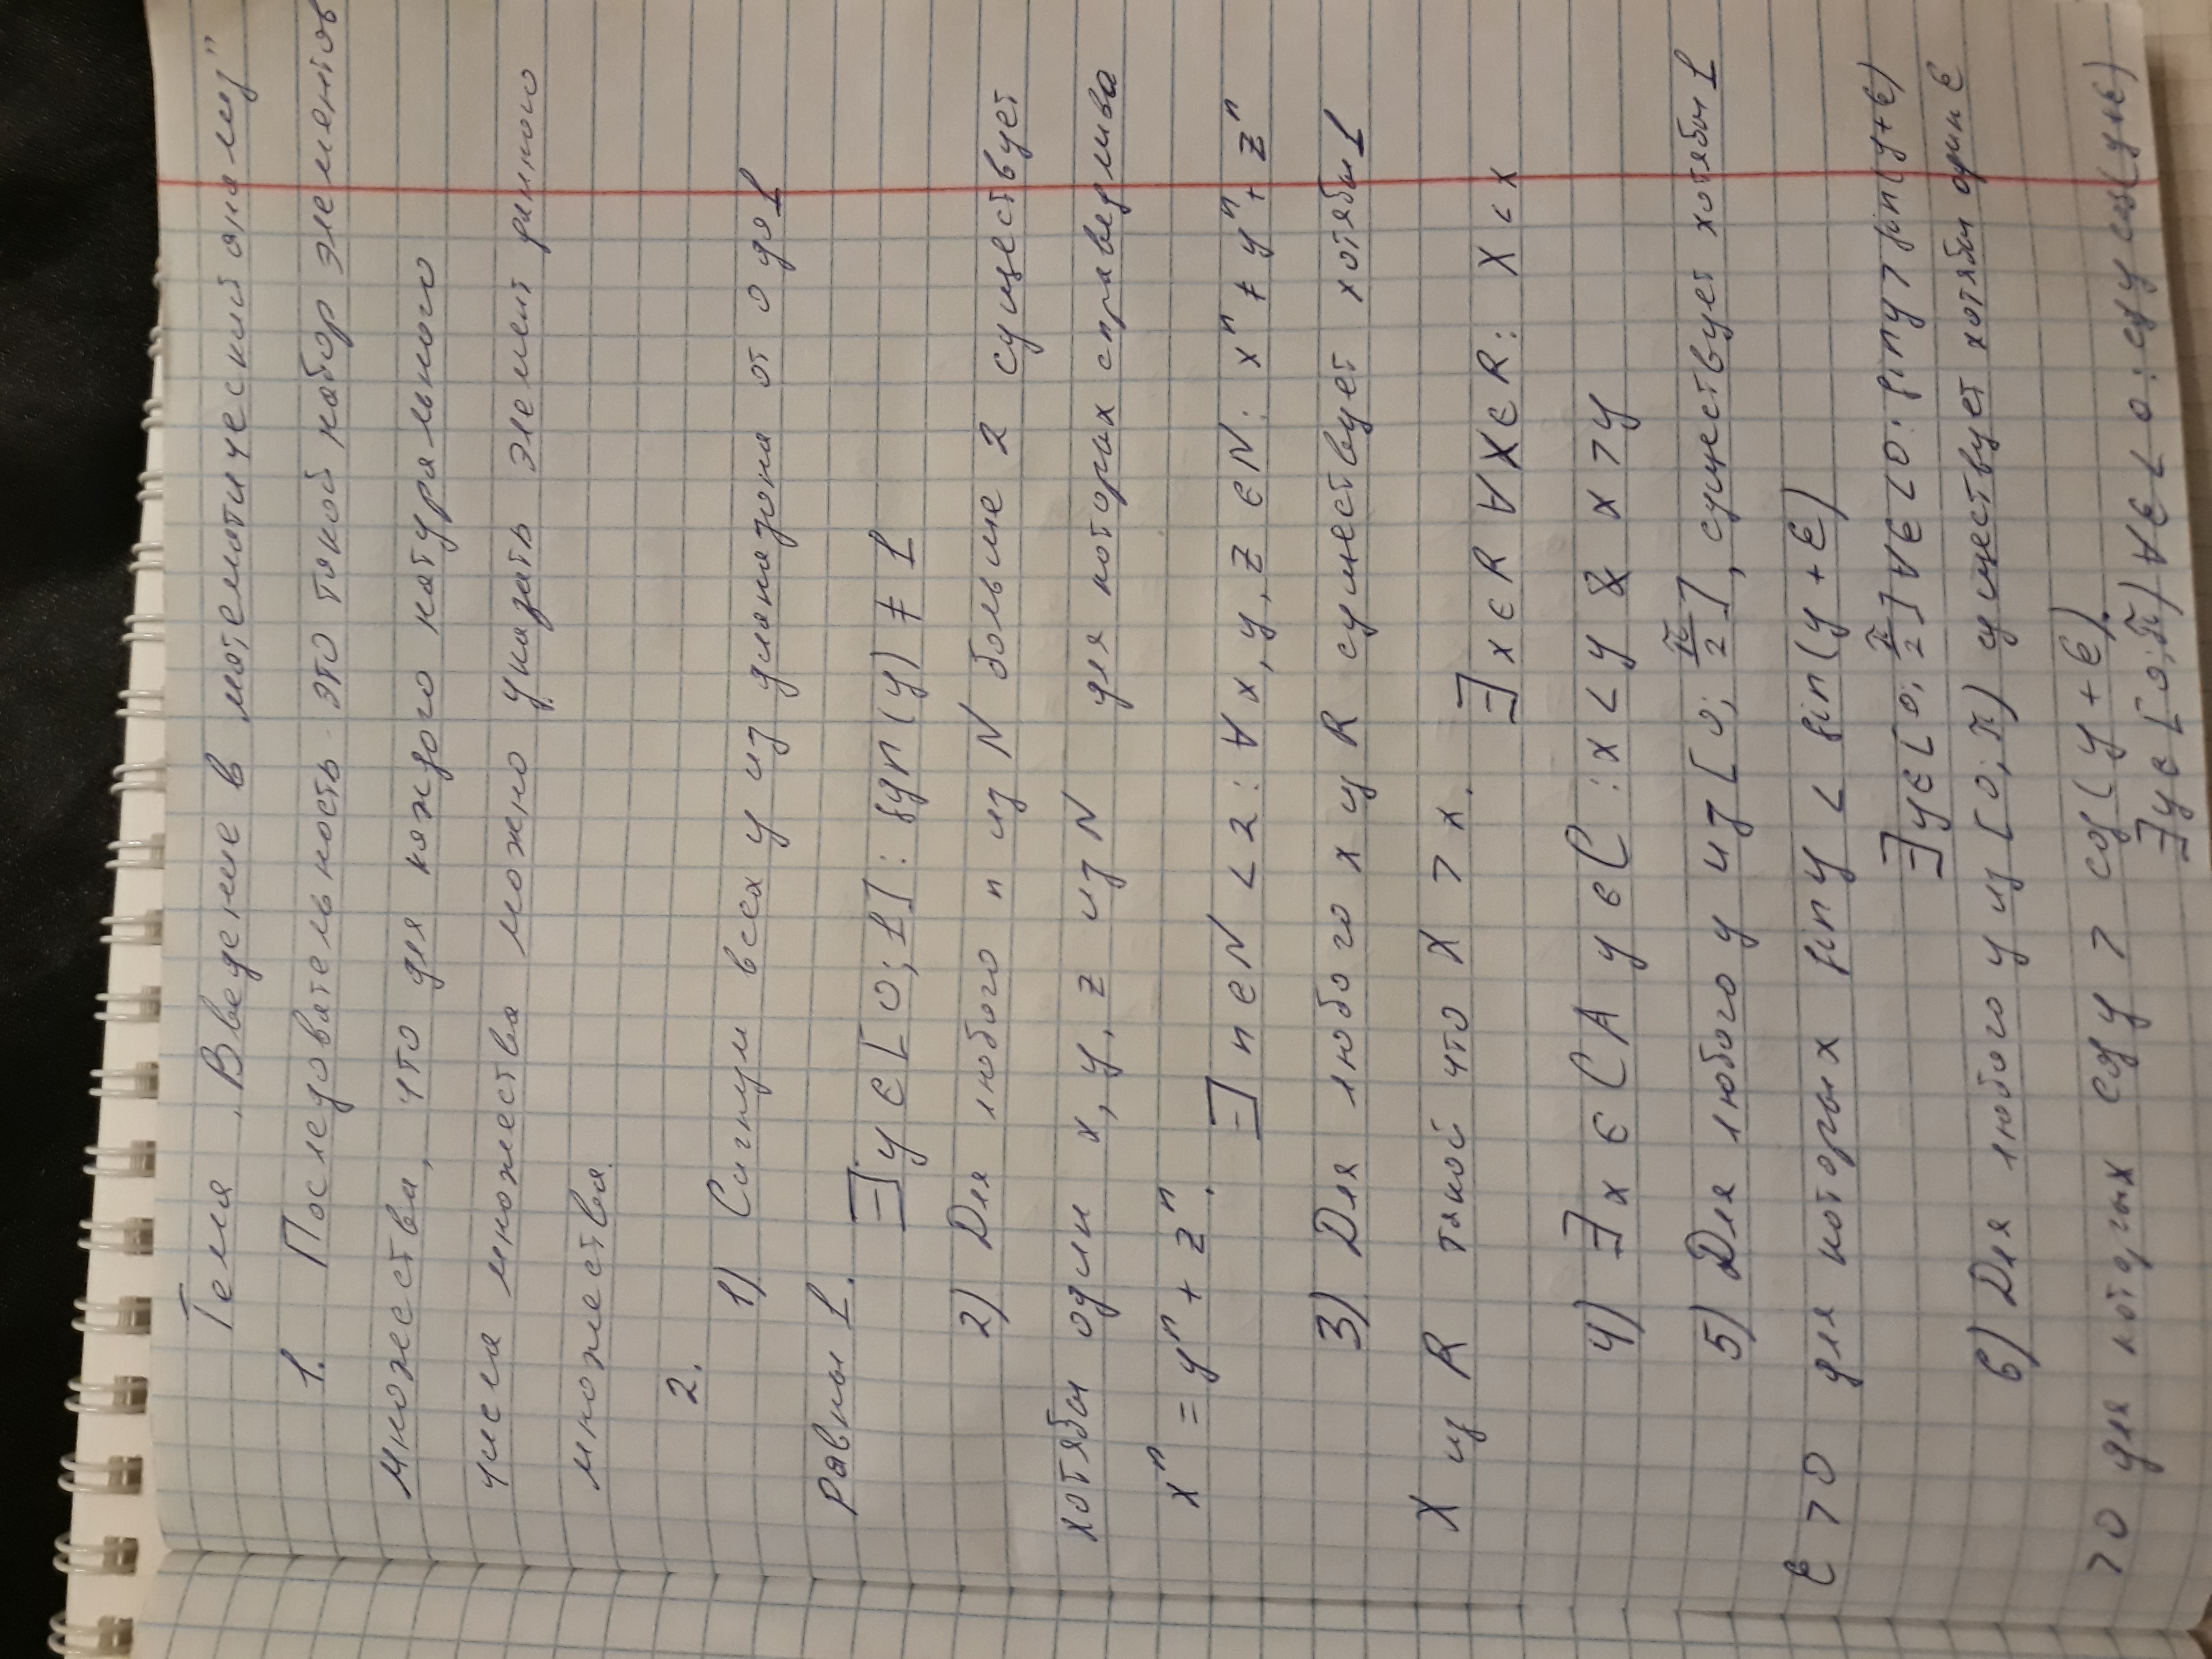 Тема „Введение в математический анализ"
1. Последовательность - это такой набор элементов
множества, что для каждого натурального
числа множества можно указать элемент данного
множества.
2.
1) Сигнум всех y из диапазона от 0 до 1
равны 1.
∃y ∈ [0; 1] : sgn(y) ≠ 1
2) Для любого n из N больше 2 существует
хотябы один x, y, z из N для которых справедлива
xⁿ = yⁿ + zⁿ.
∃ n ∈ N < 2 : ∀ x, y, z ∈ N : xⁿ ≠ yⁿ + zⁿ
3) Для любого x из R существует хотябы 1
X из R такой что X > x.
∃ x ∈ R ∀ X ∈ R : X < x
4) ∃ x ∈ C A y ∈ C : x < y & x > y
5) Для любого y из [0; π/2], существует хотябы 1
ε > 0 для которых sin y < sin(y + ε)
∃y ∈ [0; π/2] ∀ ε < 0 : sin y > sin(y+ε)
6) Для любого y из [0; π) существует хотябы один ε
> 0 для которых cos y > cos(y + ε).
∃y ∈ [0; π( ∀ ε < 0 : cos y cos(y+ε)